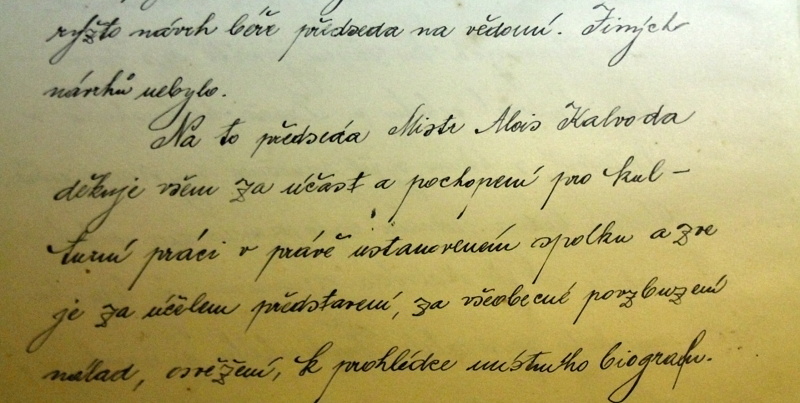 ryžto návrh béře předseda na vědomí. Jiných
návrhů nebylo.
Na to předseda Mistr Alois Kalvoda
děkuje všem za účast a pochopení pro kul-
turní práci v právě ustanoveném spolku a zve
je za účelem představení, za všeobecné povzbuzení
nálad, osvěžení, k prohlédce místního biografu.